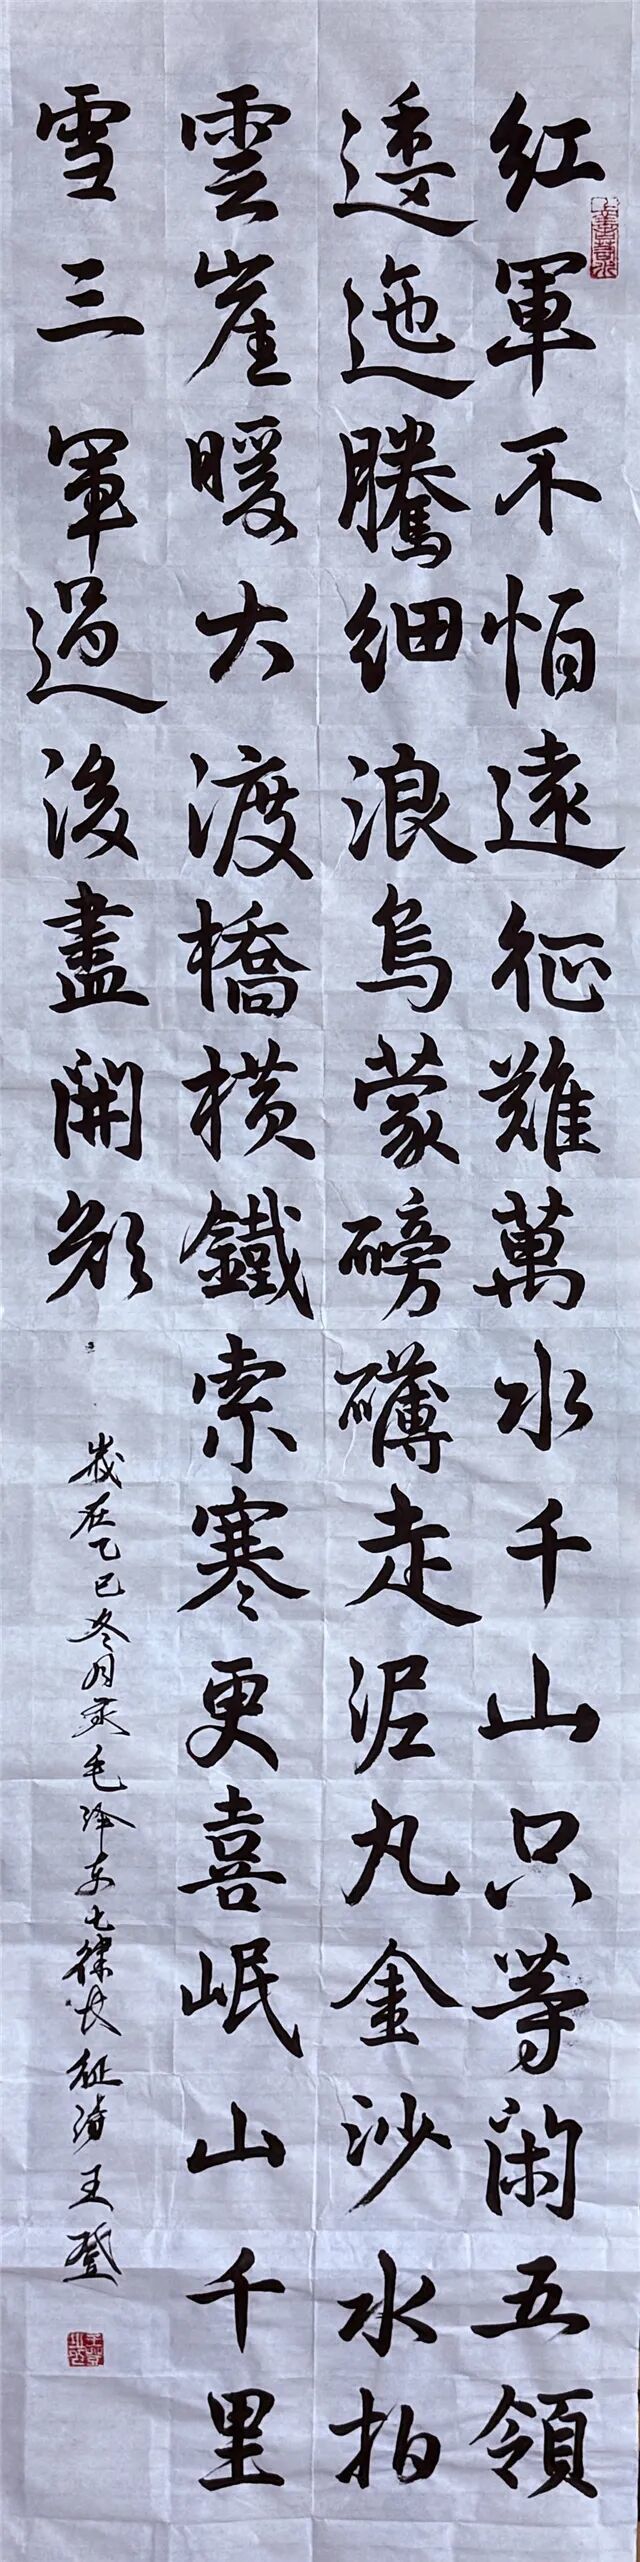 紅軍不怕遠征難萬水千山只等閑五領
逶迤騰細浪烏蒙磅礴走泥丸金沙水拍
雲崖暖大渡橋横鐵索寒更喜岷山千里
雪三軍過後盡開顔
歲在乙巳冬月录毛泽东七律长征诗王登
上善若水